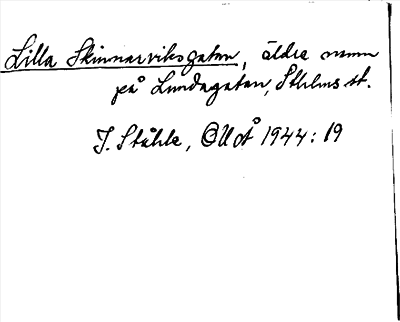 Lilla Skinnarviksgatan, äldre namn
på Lundagatan, Sthlms st.
J. Ståhle, OUoÅ 1944: 19